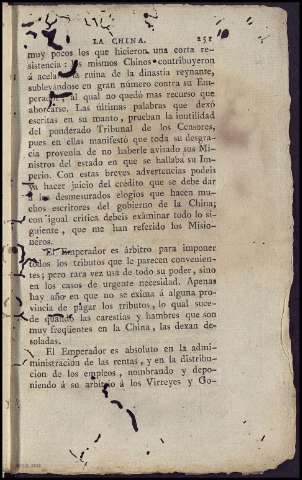 LA CHINA. 251
muy pocos los que hicieron una corta re-
sistencia: mismos Chinos contribuyeron
á acela la ruina de la dinastia reynante,
sublevándose en gran número contra su Em-
perador, al qual no quedó mas recurso que
ahorcarse. Las últimas palabras que dexó
escritas en su manto, prueban la inutilidad
del ponderado Tribunal de los Censores,
pues en ellas manifestó que toda su desgra-
cia provenia de no haberle avisado sus Mi-
nistros del estado en que se hallaba su Im-
perio. Con estas breves advertencias podeis
hacer juicio del crédito que se debe dar
desmesurados elogios que hacen mu-
chos escritores del gobierno de la China;
con igual crítica debeis exâminar todo lo si-
guiente, que me han referido los Misio-
neros.
El Emperador es árbitro para imponer
todos los tributos que le parecen convenien-
tes; pero rara vez usa de todo su poder, sino
en los casos de urgente necesidad. Apenas
hay año en que no se exîma á alguna pro-
vincia de pagar los tributos, lo qual suce-
de quando las carestías y hambres que son
muy freqüentes en la China, las dexan de-
soladas.
El Emperador es absoluto en la admi-
ministracion de las rentas, y en la distribu-
cion de los empleos, nombrando y depo-
niendo á su arbitrio á los Virreyes y Go-